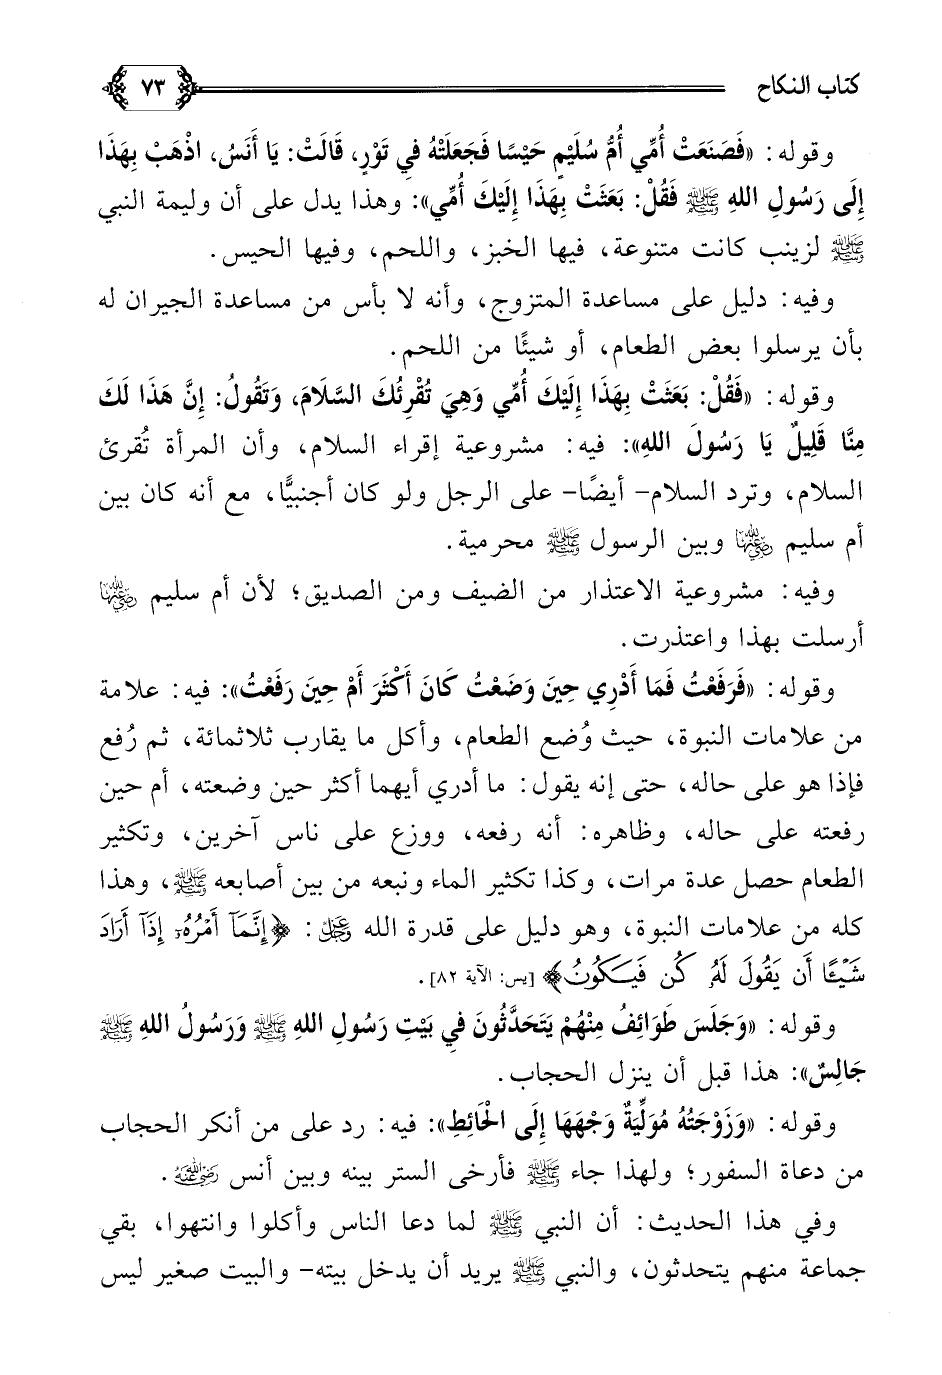 كتاب النكاح ٧٣
وقوله: «فَصَنَعَتْ أُمِّي أُمُّ سُلَيْمٍ حَيْسًا فَجَعَلَتْهُ فِي تَوْرٍ، قَالَتْ: يَا أَنَسُ، اذْهَبْ بِهَذَا
إِلَى رَسُولِ اللهِ ﷺ فَقُلْ: بَعَثَتْ بِهَذَا إِلَيْكَ أُمِّي»: وهذا يدل على أن وليمة النبي
ﷺ لزينب كانت متنوعة، فيها الخبز، واللحم، وفيها الحيس.
وفيه: دليل على مساعدة المتزوج، وأنه لا بأس من مساعدة الجيران له
بأن يرسلوا بعض الطعام، أو شيئًا من اللحم.
وقوله: «فَقُلْ: بَعَثَتْ بِهَذَا إِلَيْكَ أُمِّي وَهِيَ تُقْرِئُكَ السَّلَامَ، وَتَقُولُ: إِنَّ هَذَا لَكَ
مِنَّا قَلِيلٌ يَا رَسُولَ اللهِ»: فيه: مشروعية إقراء السلام، وأن المرأة تُقرئ
السلام، وترد السلام- أيضًا- على الرجل ولو كان أجنبيًّا، مع أنه كان بين
أم سليم رضي الله عنها وبين الرسول ﷺ محرمية.
وفيه: مشروعية الاعتذار من الضيف ومن الصديق؛ لأن أم سليم رضي الله عنها
أرسلت بهذا واعتذرت.
وقوله: «فَرَفَعْتُ فَمَا أَدْرِي حِينَ وَضَعْتُ كَانَ أَكْثَرَ أَمْ حِينَ رَفَعْتُ»: فيه: علامة
من علامات النبوة، حيث وُضع الطعام، وأكل ما يقارب ثلاثمائة، ثم رُفع
فإذا هو على حاله، حتى إنه يقول: ما أدري أيهما أكثر حين وضعته، أم حين
رفعته على حاله، وظاهره: أنه رفعه، ووزع على ناس آخرين، وتكثير
الطعام حصل عدة مرات، وكذا تكثير الماء ونبعه من بين أصابعه ﷺ، وهذا
كله من علامات النبوة، وهو دليل على قدرة الله عز وجل: ﴿إِنَّمَآ أَمْرُهُۥٓ إِذَآ أَرَادَ
شَيْـًٔا أَن يَقُولَ لَهُۥ كُن فَيَكُونُ﴾ [يس: الآية ٨٢].
وقوله: «وَجَلَسَ طَوَائِفُ مِنْهُمْ يَتَحَدَّثُونَ فِي بَيْتِ رَسُولِ اللهِ ﷺ وَرَسُولُ اللهِ ﷺ
جَالِسٌ»: هذا قبل أن ينزل الحجاب.
وقوله: «وَزَوْجَتُهُ مُوَلِّيَةٌ وَجْهَهَا إِلَى الْحَائِطِ»: فيه: رد على من أنكر الحجاب
من دعاة السفور؛ ولهذا جاء ﷺ فأرخى الستر بينه وبين أنس رضي الله عنه.
وفي هذا الحديث: أن النبي ﷺ لما دعا الناس وأكلوا وانتهوا، بقي
جماعة منهم يتحدثون، والنبي ﷺ يريد أن يدخل بيته- والبيت صغير ليس